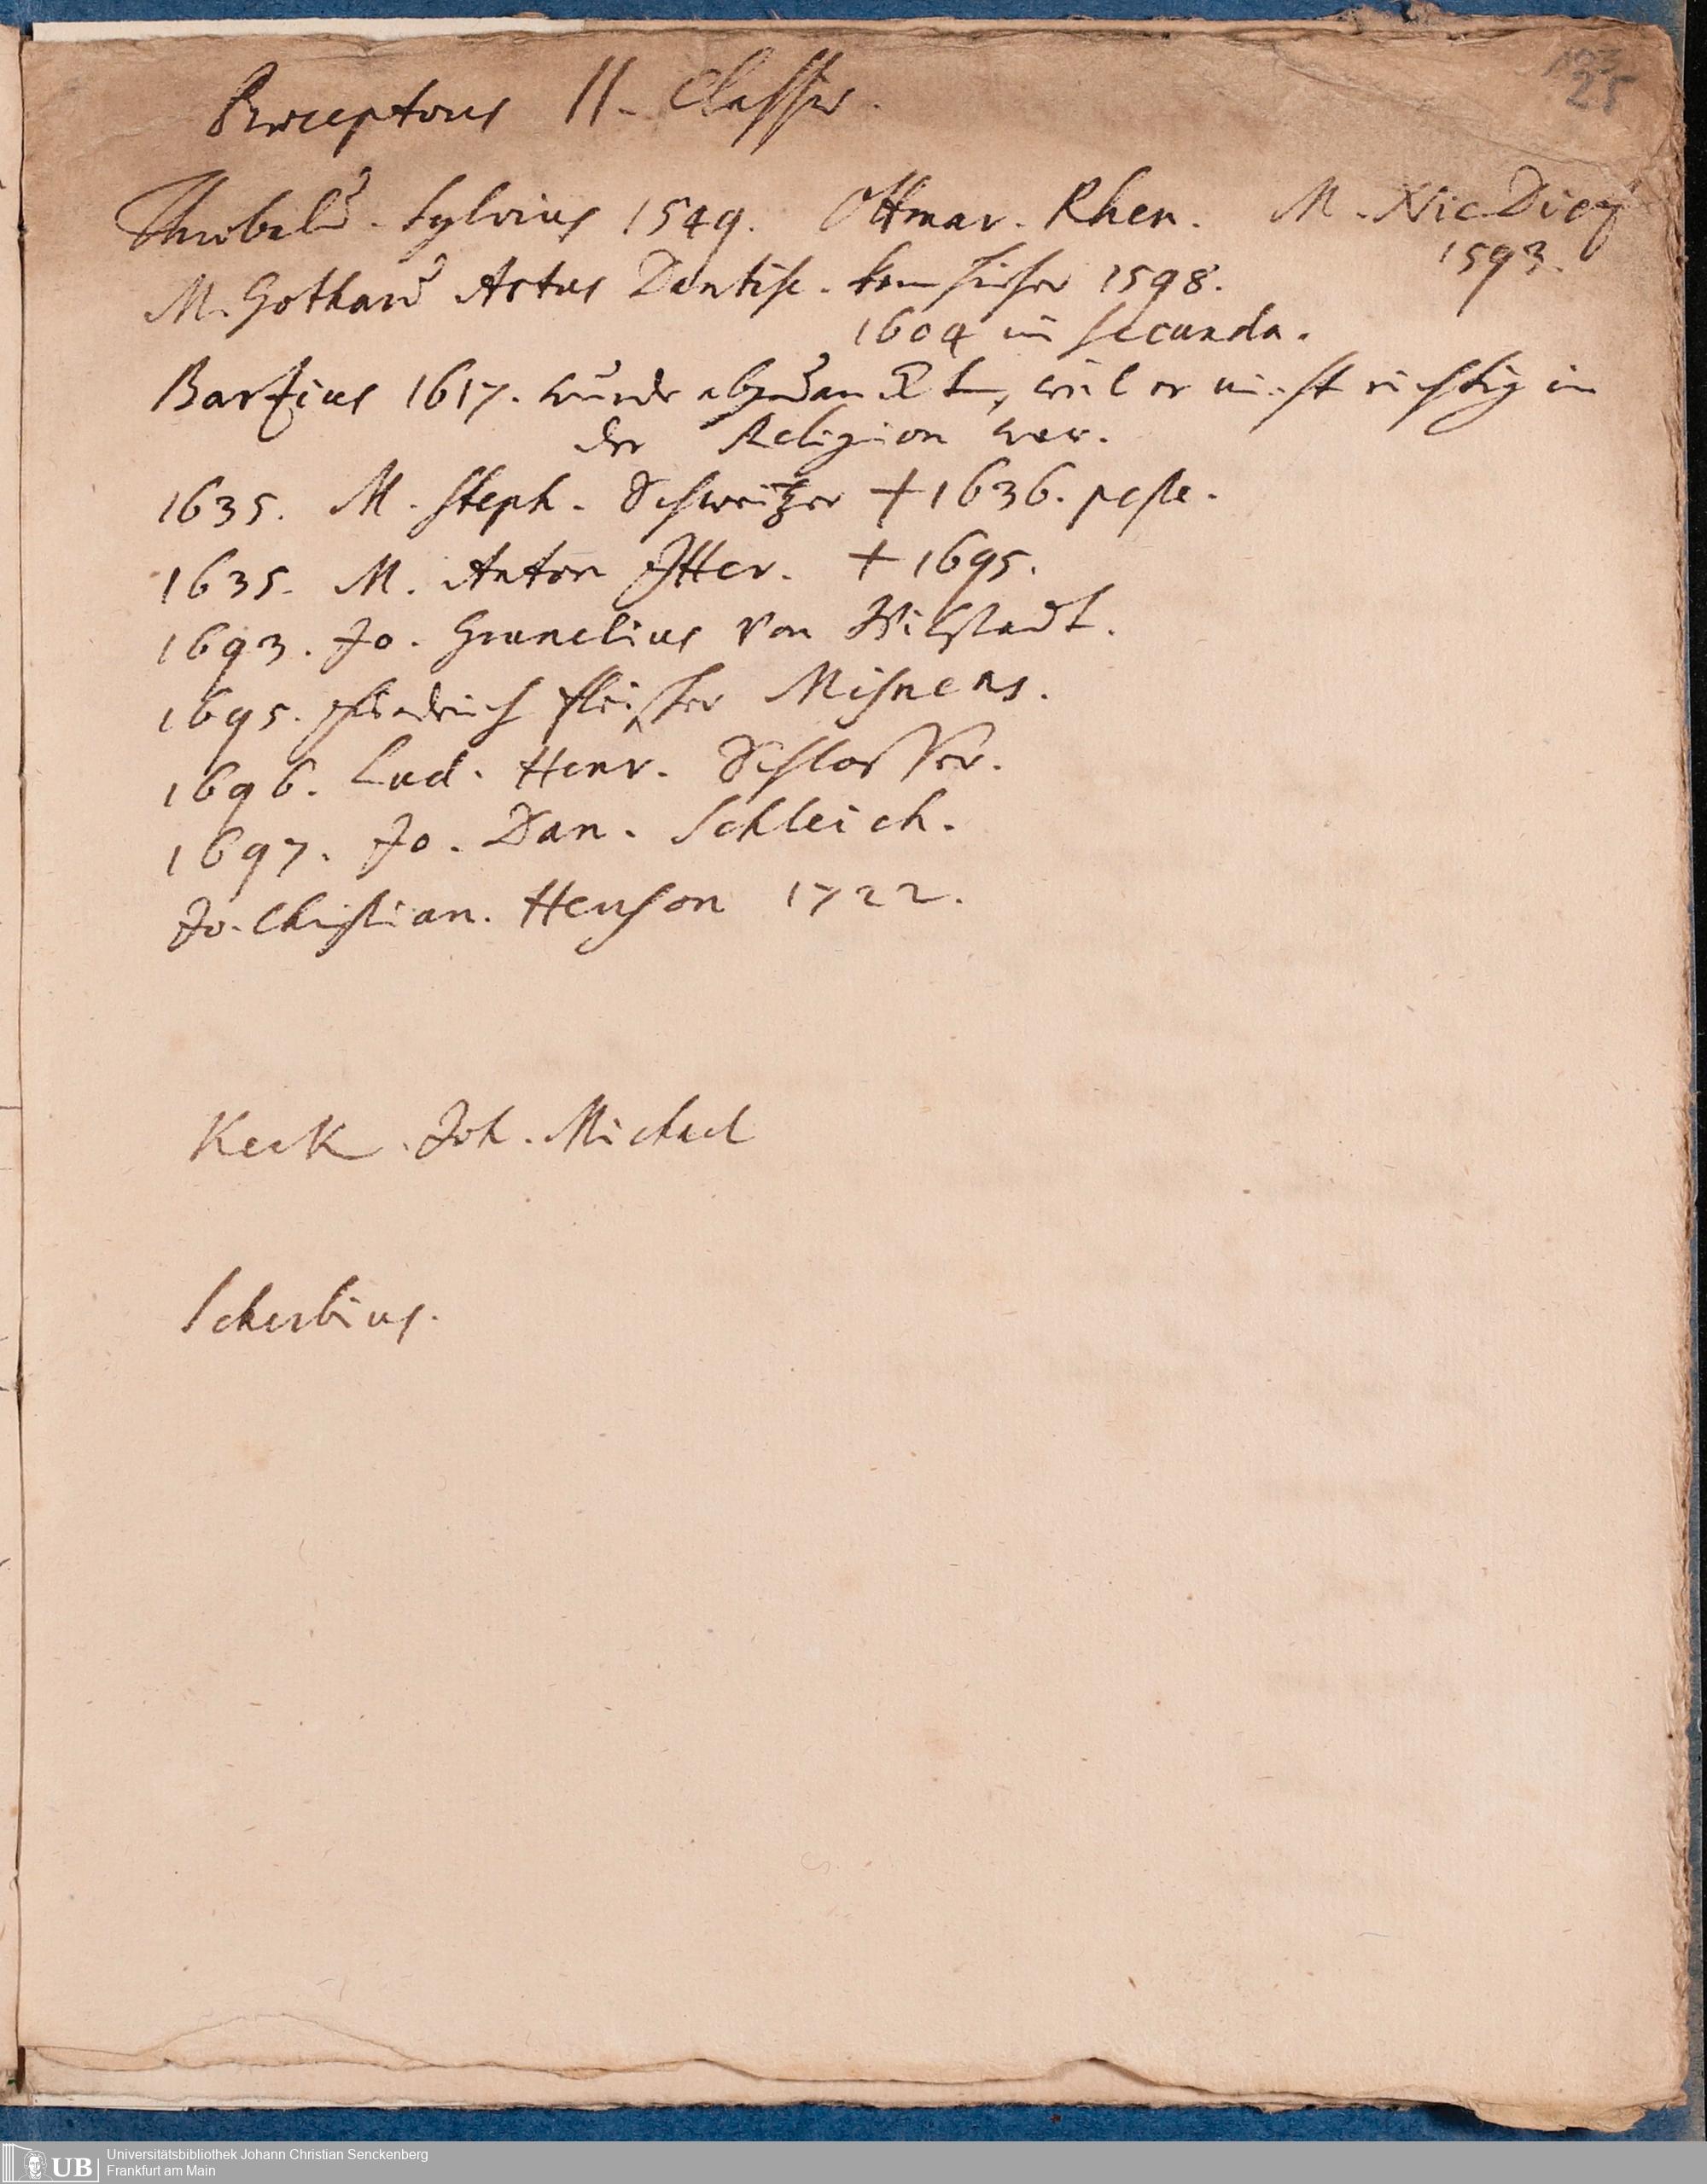 25
Præceptores II. Classis.
Theobald. Sylvius 1549. Ottmar. Rhen. M. Nic Dieg
1593.
M. Gothard Artus Dantisc. kam hieher 1598.
1604 in secunda.
Barthius 1617. wurde abgedanckt, weil er nicht richtig in
der Religion war.
1635. M. Steph. Schweitzer † 1636. peste.
1635. M. Anton Itter. † 1695.
1693. Jo. Grunelius von Wilstadt.
1695. Friedrich Fleischer Misnens.
1696. Lud. Henr. Schlosser.
1697. Jo. Dan. Schleich.
Jo. Christian. Henson 1722.
Keck. Joh. Michael
Scherbius.
UB Universitätsbibliothek Johann Christian Senckenberg
Frankfurt am Main